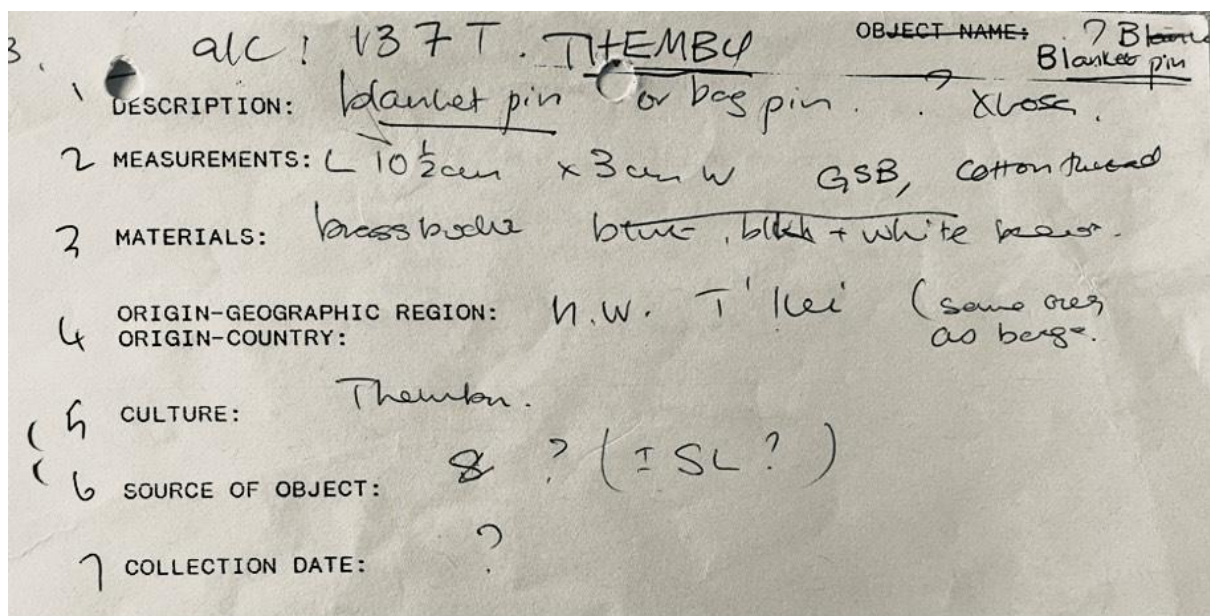 3. a/c: 137T. THEMBU OBJECT NAME: ? Blanke
Blanket pin
1 DESCRIPTION: blanket pin or bag pin. ? Xhosa.
2 MEASUREMENTS: L 10½cm x 3cm W GSB, Cotton thread
3 MATERIALS: brass blue, blk + white
4 ORIGIN-GEOGRAPHIC REGION: N.W. T'kei (same area
ORIGIN-COUNTRY: as
( 5 CULTURE: Thembu.
( 6 SOURCE OF OBJECT: 8 ? (I SL?)
7 COLLECTION DATE: ?